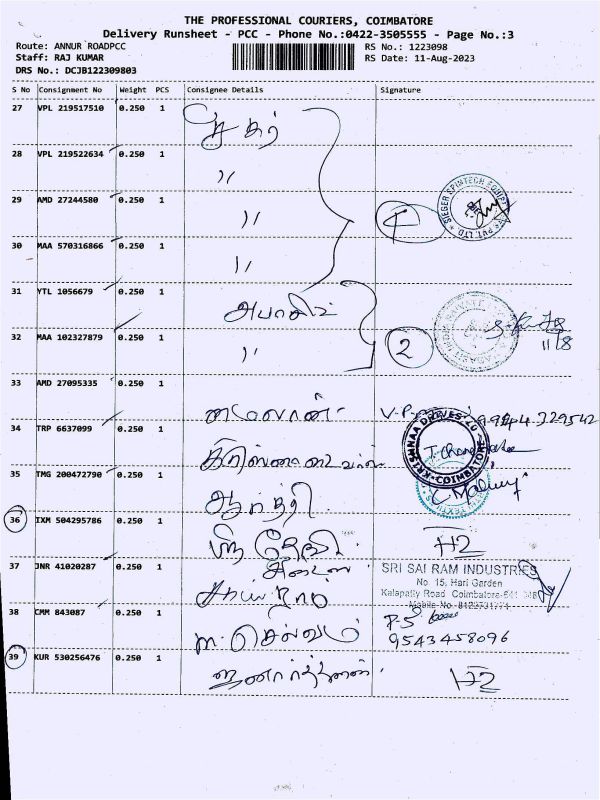 THE PROFESSIONAL COURIERS, COIMBATORE
Delivery Runsheet - PCC - Phone No.:0422-3505555 - Page No.:3
Route: ANNUR ROADPCC
RS No.: 1223098
Staff: RAJ KUMAR
RS Date: 11-Aug-2023
DRS No.: DCJB122309803
S No Consignment No Weight PCS Consignee Details Signature
27 VPL 219517510 0.250 1
28 VPL 219522634 0.250 1
"
29 AMD 27244580 0.250 1
"
30 MAA 570316866 0.250 1
"
31 YTL 1056679 0.250 1
32 MAA 102327879 0.250 1
" 2
11/8
33 AMD 27095335 0.250 1
V.P. 99944 329542
34 TRP 6637099 0.250 1
KRISHNAA DRIVES
COIMBATORE
35 TMG 200472790 0.250 1
36 IXM 504295786 0.250 1
ஸ்ரீ தேவி H2
37 JNR 41020287 0.250 1
SRI SAI RAM INDUSTRIES
No. 15, Hari Garden
Kalapatty Road Coimbatore-641
38 CMM 843087 0.250 1
m. செல்வம் 9543458096
39 KUR 530256476 0.250 1
ஜனார்த்தனன் H2